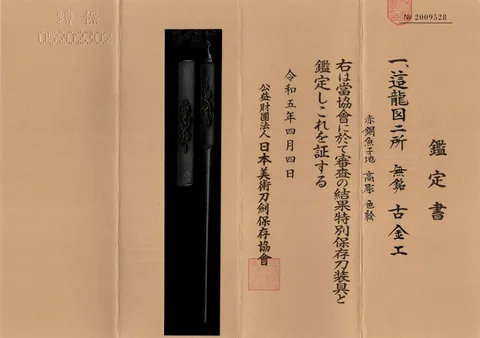 № 2009528
鑑定書
一、這龍図二所 無銘 古金工
赤銅魚子地 高彫 色絵
右は當協會に於て審査の結果特別保存刀装具と
鑑定しこれを証する
令和五年四月四日
公益財團法人 日本美術刀劍保存協會
特保
05202302